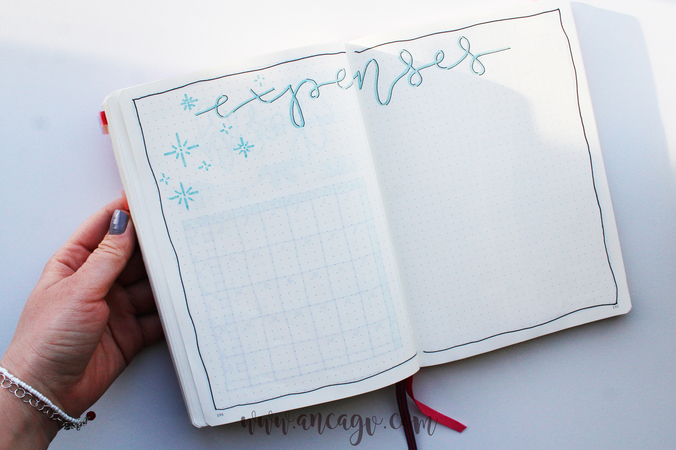 expenses
www.ancagv.com